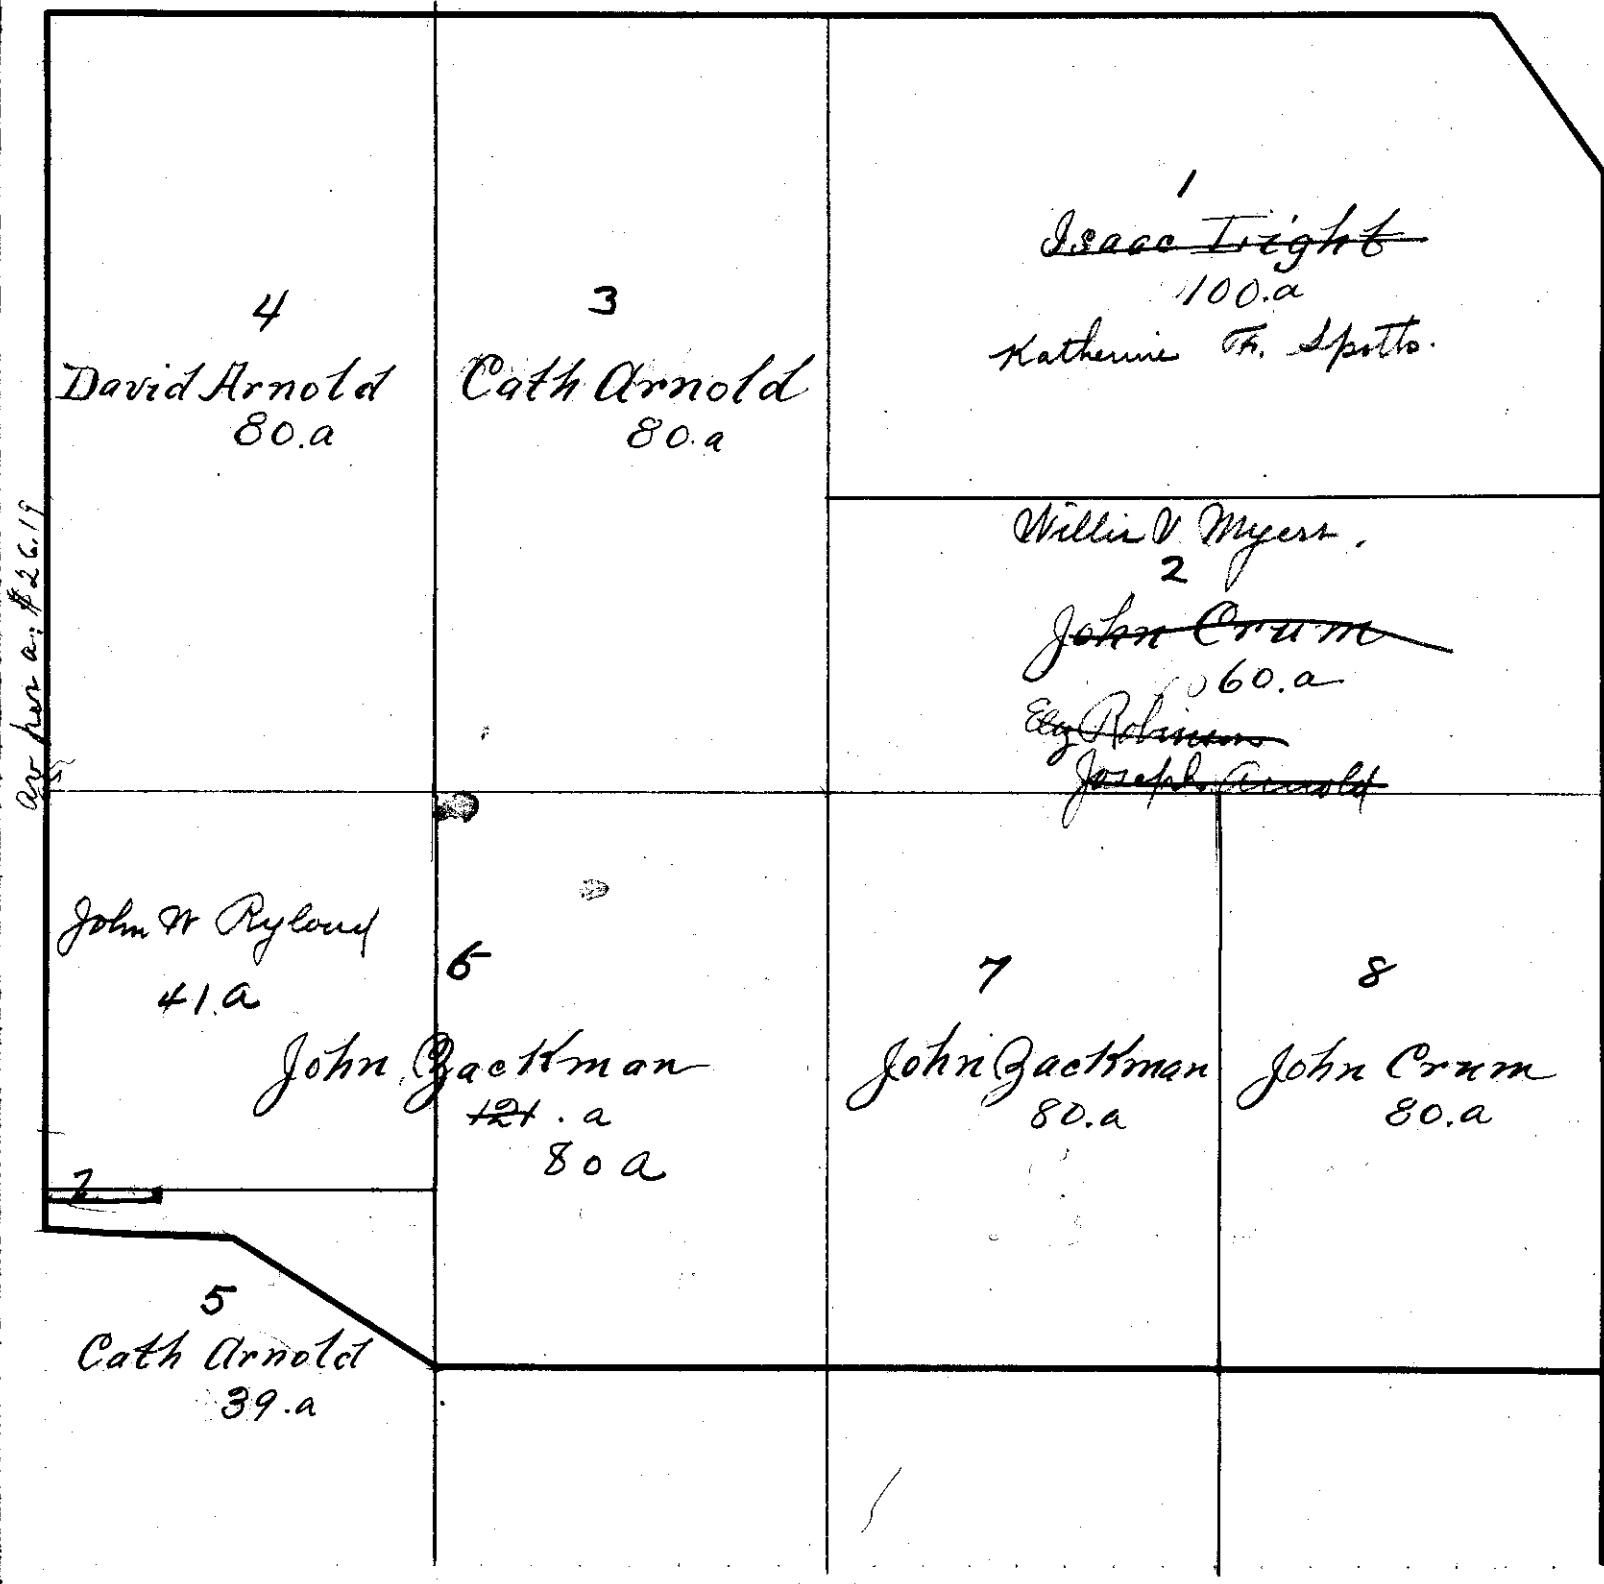 4
David Arnold
80.a
3
Cath Arnold
80.a
1
Isaac Tright
100.a
Katherine Th. Spotts.
Willis V Myers.
2
John Crum
60.a
Robinson
Joseph Arnold
av per a. $26.19
John W Ryloud
41.a
6
John Zackman
121.a
80 a
7
John Zackman
80.a
8
John Crum
80.a
5
Cath Arnold
39.a